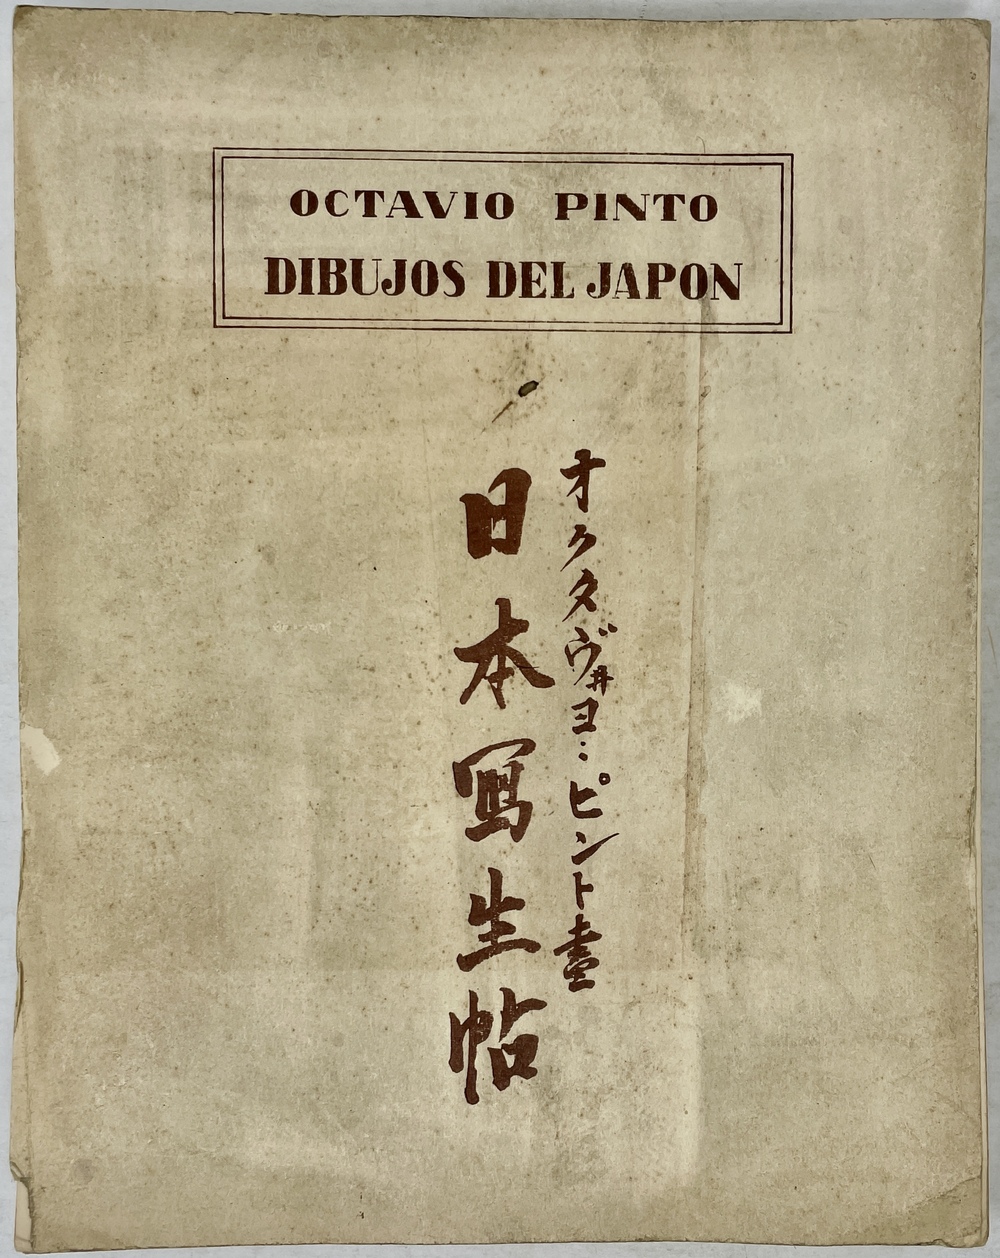 OCTAVIO PINTO
DIBUJOS DEL JAPON
オクタヴヰヨ・・ピント畫
日本寫生帖